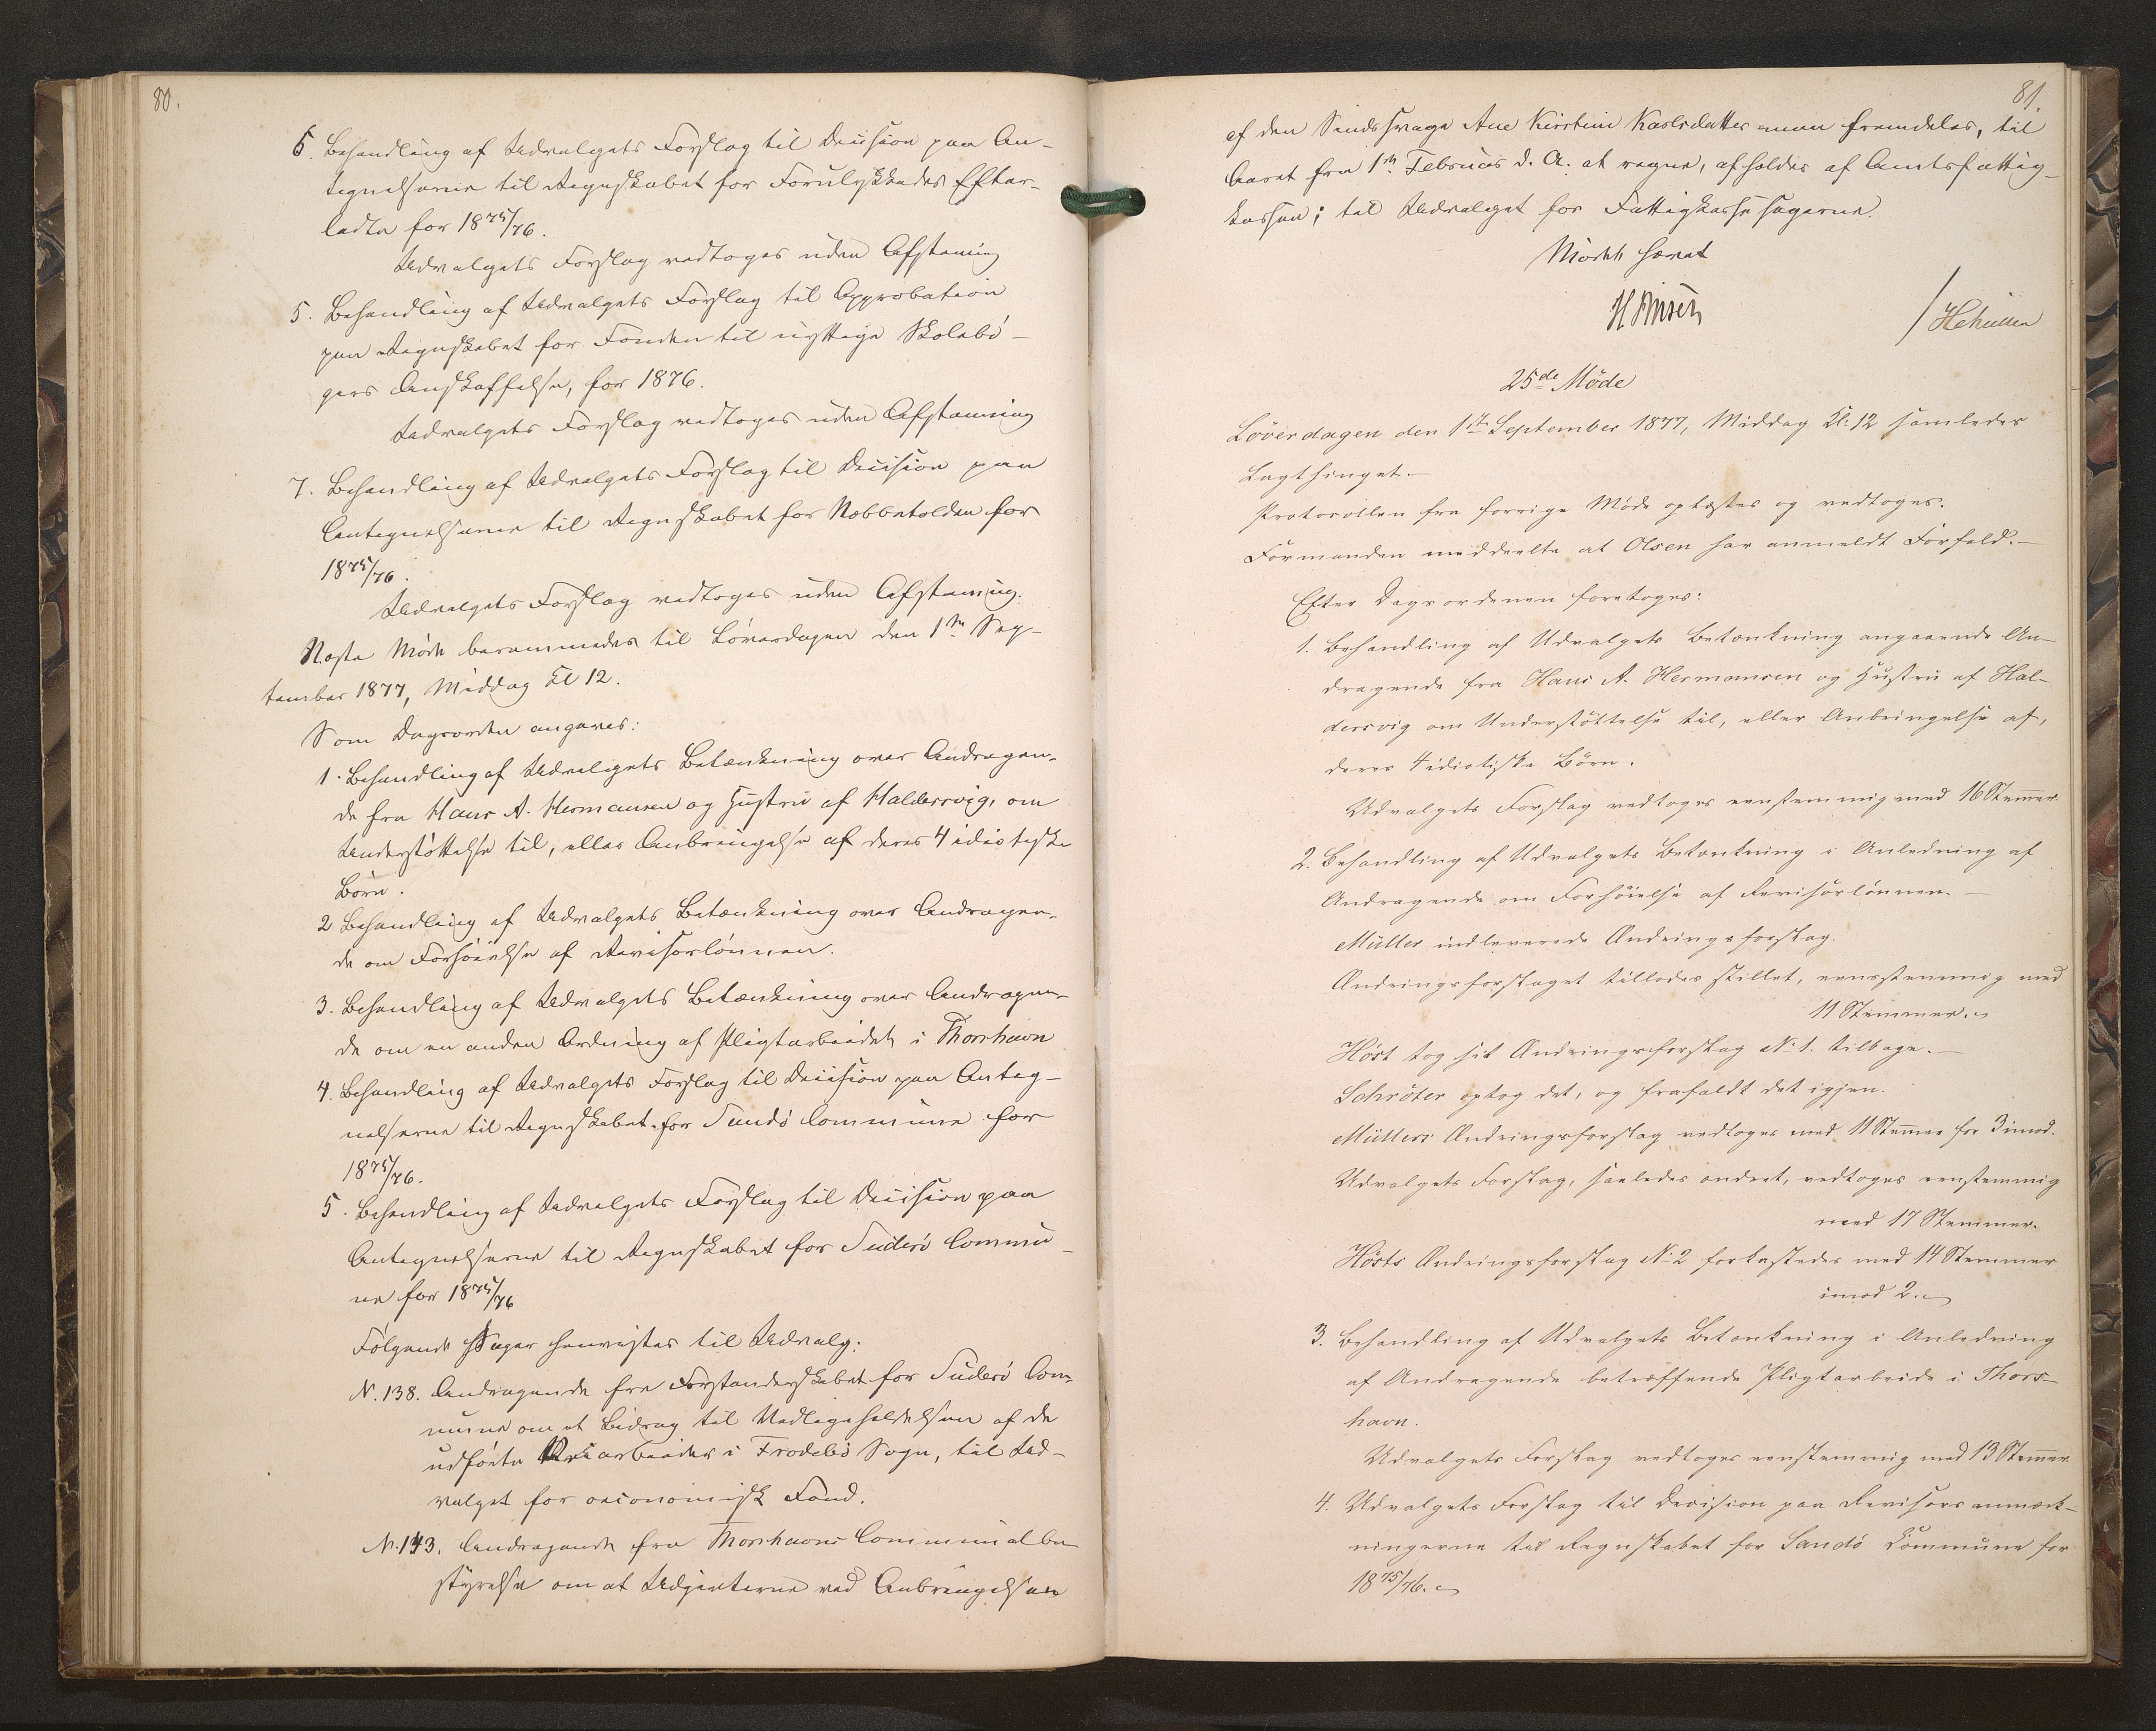 80.
5. Behandling af Udvalgets Forslag til Decision paa An-
tegnelserne til Regnskabet for Forulykkedes Efter-
ladte for 1875/76.
Udvalgets Forslag vedtoges uden Afstemning
5. Behandling af Udvalgets Forslag til Approbation
paa Regnskabet for Fonden til nyttige Skolebö-
gers Anskaffelse, for 1876.
Udvalgets Forslag vedtoges uden Afstemning
7. Behandling af Udvalgets Forslag til Decision paa
Antegnelserne til Regnskabet for Næbbetolden for
1875/76.
Udvalgets Forslag vedtoges uden Afstemning.
Næste Möde berammedes til Löverdagen den 1ste Sep-
tember 1877, Middag Kl 12.
Som Dagsorden angaves:
1. Behandling af Udvalgets Betænkning over Andragen-
de fra Hans A. Hermansen og Hustru af Haldersvig, om
Understöttelse til, eller Anbringelse af deres 4 idiotiske
Börn.
2 Behandling af Udvalgets Betænkning over Andragen-
de om Forhöielse af Revisorlönnen.
3. Behandling af Udvalgets Betænkning over Andragen-
de om en anden Ordning af Pligtarbeidet i Thorshavn
4. Behandling af Udvalgets Forslag til Decision paa Anteg-
nelserne til Regnskabet for Sandö Commune for
1875/76.
5. Behandling af Udvalgets Forslag til Decision paa
Antegnelserne til Regnskabet for Suderö Commu-
ne for 1875/76
Fölgende Sager henvistes til Udvalg:
N. 138. Andragende fra Forstanderskabet for Suderö Com-
mune om et Bidrag til Vedligeholdelsen af de
udförte Veiarbeider i Frodebö Sogn, til Ud-
valget for oeconomisk Fond.
N. 143. Andragende fra Thorshavns Communalbe-
styrelse om at Udgifterne ved Anbringelsen
81.
af den Sindssvage Ane Kirstine Karlsdatter maa fremdeles, til
Aaret fra 1ste Februar d. A. at regne, afholdes af Amtsfattig-
kassen; til Udvalget for Fattigkassesagerne.
Mödet hævet
H Finsen
/ HChüllen
25de Möde
Löverdagen den 1ste September 1877, Middag Kl. 12 samledes
Lagthinget.
Protocollen fra forrige Möde oplæstes og vedtoges.
Formanden meddeelte at Olsen har anmeldt Forfald.
Efter Dagsordenen foretoges:
1. Behandling af Udvalgets Betænkning angaaende An-
dragende fra Hans A. Hermansen og Hustru af Hal-
dersvig om Understöttelse til, eller Anbringelse af,
deres 4 idiotiske Börn.
Udvalgets Forslag vedtoges eenstemmig med 16 Stemmer.
2. Behandling af Udvalgets Betænkning i Anledning af
Andragende om Forhöielse af Revisorlönnen.
Müller indleverede Ændringsforslag.
Ændringsforslaget tillodes stillet, eensstemmig med
11 Stemmer.
Höst tog sit Ændringsforslag No 1. tilbage.
Schröter optog det, og frafaldt det igjen.
Müllers Ændringsforslag vedtoges med 11 Stemmer for 3 imod.
Udvalgets Forslag, saaledes ændret, vedtoges eenstemmig
med 17 Stemmer.
Hösts Ændringsforslag No 2 forkastedes med 14 Stemmer
imod 2.
3. Behandling af Udvalgets Betænkning i Anledning
af Andragende betræffende Pligtarbeide i Thors-
havn.
Udvalgets Forslag vedtoges eenstemmig med 13 Stemmer.
4. Udvalgets Forslag til Decision paa Revisors anmærk-
ningerne til Regnskabet for Sandö Kommune for
1875/76.